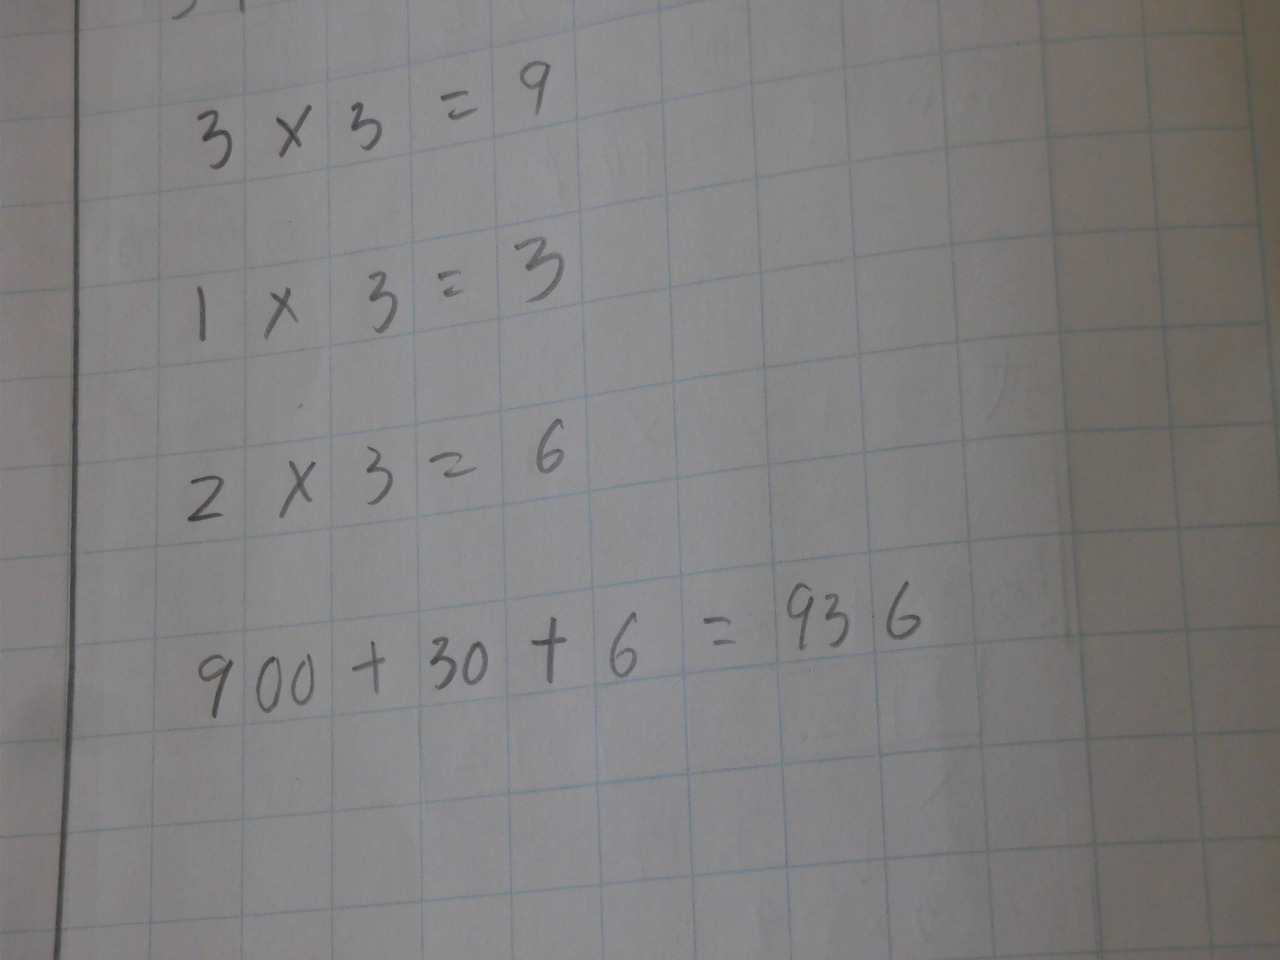 3 × 3 = 9
1 × 3 = 3
2 × 3 = 6
900 + 30 + 6 = 936